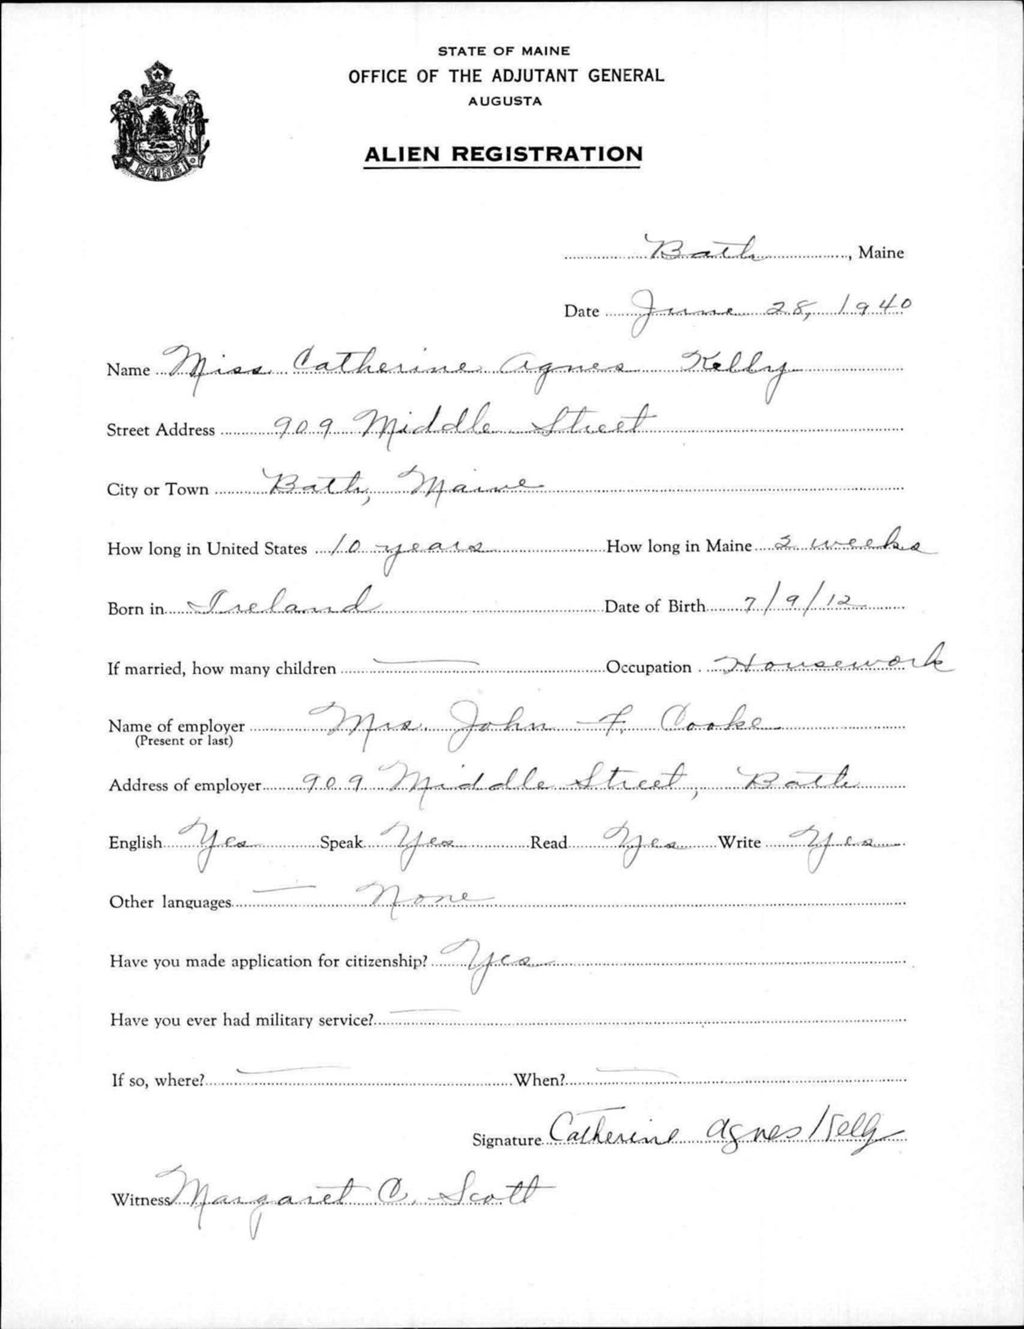 STATE OF MAINE
OFFICE OF THE ADJUTANT GENERAL
AUGUSTA
ALIEN REGISTRATION
MAINE
Bath, Maine
Date June 28, 1940
Name Miss Catherine Agnes Kelly
Street Address 909 Middle Street
City or Town Bath, Maine
How long in United States 10 years How long in Maine 2 weeks
Born in Ireland Date of Birth 7/9/12
If married, how many children — Occupation Housework
Name of employer Mrs. John F. Cooke
(Present or last)
Address of employer 909 Middle Street, Bath
English Yes Speak Yes Read Yes Write Yes
Other languages — None
Have you made application for citizenship? Yes
Have you ever had military service? —
If so, where? — When? —
Signature Catherine Agnes Kelly
Witness Margaret C. Scott